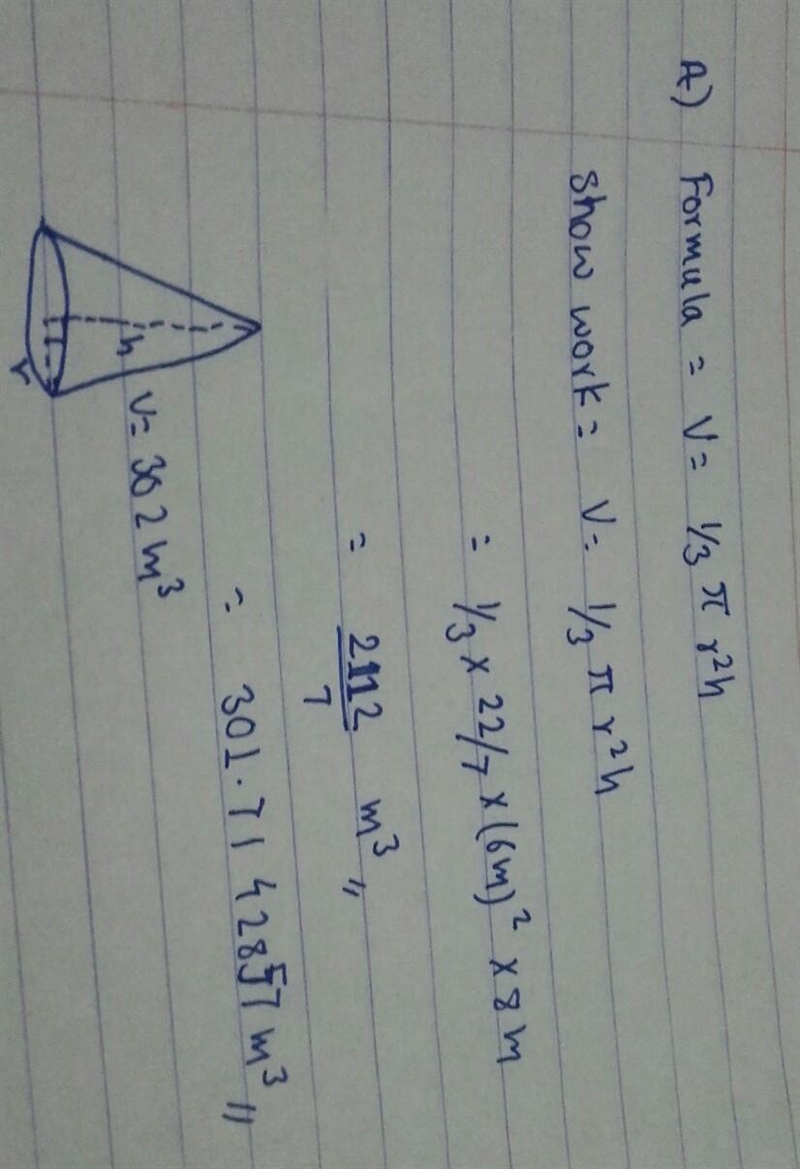 A) Formula = V = 1/3 π r²h
Show work = V = 1/3 π r²h
= 1/3 x 22/7 x (6m)² x 8m
= 2112/7 m³ //
= 301.7142857 m³ //
V = 302 m³
h
r